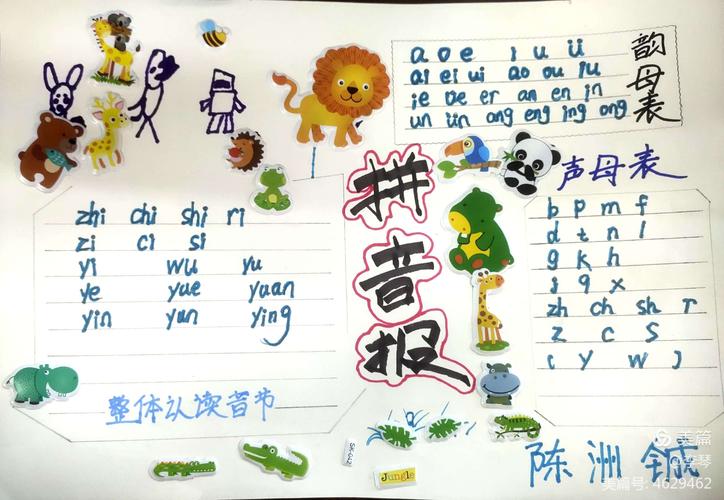 韵母表
a o e i u ü
ai ei ui ao ou iu
ie üe er an en in
un ün ang eng ing ong
拼音报
声母表
b p m f
d t n l
g k h
j q x
zh ch sh r
z c s
( y w )
zhi chi shi ri
zi ci si
yi wu yu
ye yue yuan
yin yun ying
整体认读音节
Jungle
陈洲铖
美篇
美篇号: 4629462